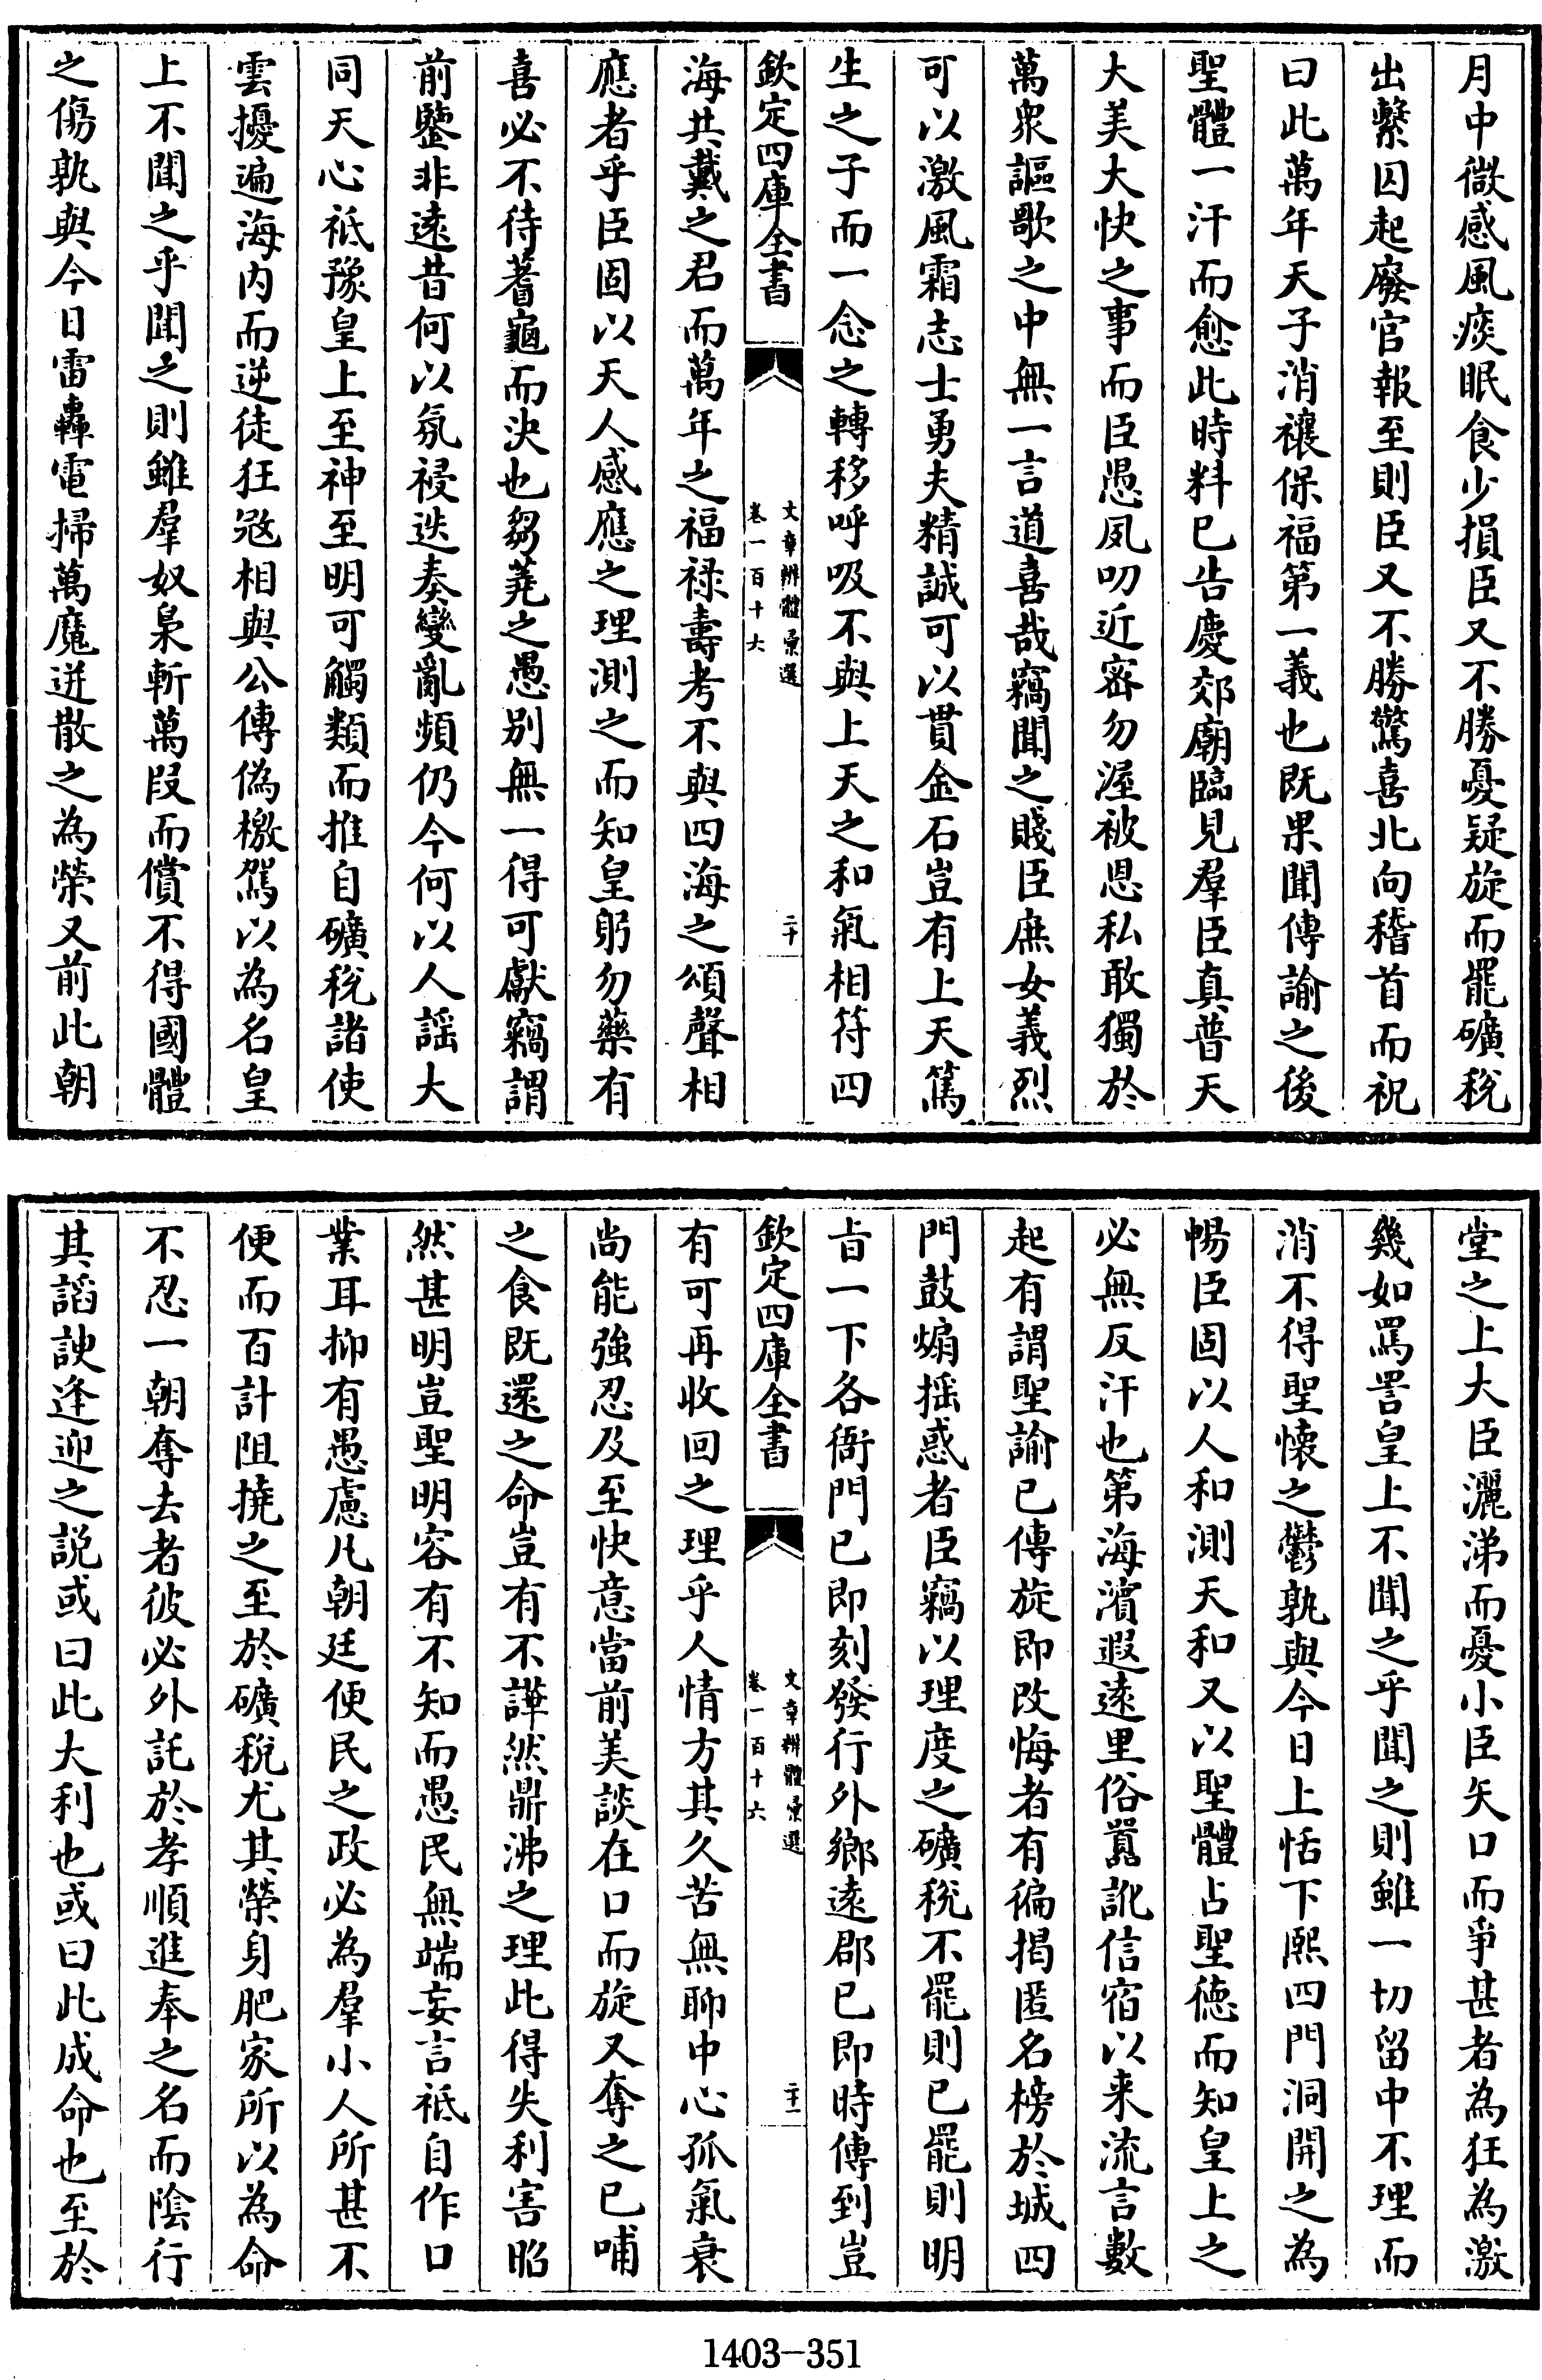 月中微感風痰眠食少損臣又不勝憂疑旋而罷礦稅
出繫囚起廢官報至則臣又不勝驚喜北向稽首而祝
曰此萬年天子消禳保福第一義也既果聞傳諭之後
聖體一汗而愈此時料已告慶郊廟臨見羣臣真普天
大美大快之事而臣愚夙叨近密勿渥被恩私敢獨於
萬衆謳歌之中無一言道喜哉竊聞之賤臣庶女義烈
可以激風霜志士勇夫精誠可以貫金石豈有上天篤
生之子而一念之轉移呼吸不與上天之和氣相符四
欽定四庫全書
文章辨體彙選
卷一百十六
二十
海共戴之君而萬年之福祿壽考不與四海之頌聲相
應者乎臣固以天人感應之理測之而知皇躬勿藥有
喜必不待蓍龜而決也芻蕘之愚別無一得可獻竊謂
前鑒非遠昔何以氛祲迭奏變亂頻仍今何以人謡大
同天心祗豫皇上至神至明可觸類而推自礦稅諸使
雲擾遍海內而逆徒狂寇相與公傳偽檄駕以為名皇
上不聞之乎聞之則雖羣奴梟斬萬段而償不得國體
之傷孰與今日雷轟電掃萬魔迸散之為榮又前此朝
堂之上大臣灑涕而憂小臣矢口而爭甚者為狂為激
幾如罵詈皇上不聞之乎聞之則雖一切留中不理而
消不得聖懷之鬱孰與今日上恬下熙四門洞開之為
暢臣固以人和測天和又以聖體占聖德而知皇上之
必無反汗也第海濱遐遠里俗囂訛信宿以来流言數
起有謂聖諭已傳旋即改悔者有徧揭匿名榜於城四
門鼓煽揺惑者臣竊以理度之礦稅不罷則已罷則明
旨一下各衙門已即刻發行外鄉遠郡已即時傳到豈
欽定四庫全書
文章辨體彙選
卷一百十六
二十一
有可再收回之理乎人情方其久苦無聊中心孤氣衰
尚能強忍及至快意當前美談在口而旋又奪之已哺
之食既還之命豈有不譁然鼎沸之理此得失利害昭
然甚明豈聖明容有不知而愚民無端妄言祗自作口
業耳抑有愚慮凡朝廷便民之政必為羣小人所甚不
便而百計阻撓之至於礦稅尤其榮身肥家所以為命
不忍一朝奪去者彼必外託於孝順進奉之名而陰行
其謟諛逢迎之說或曰此大利也或曰此成命也至於
1403-351